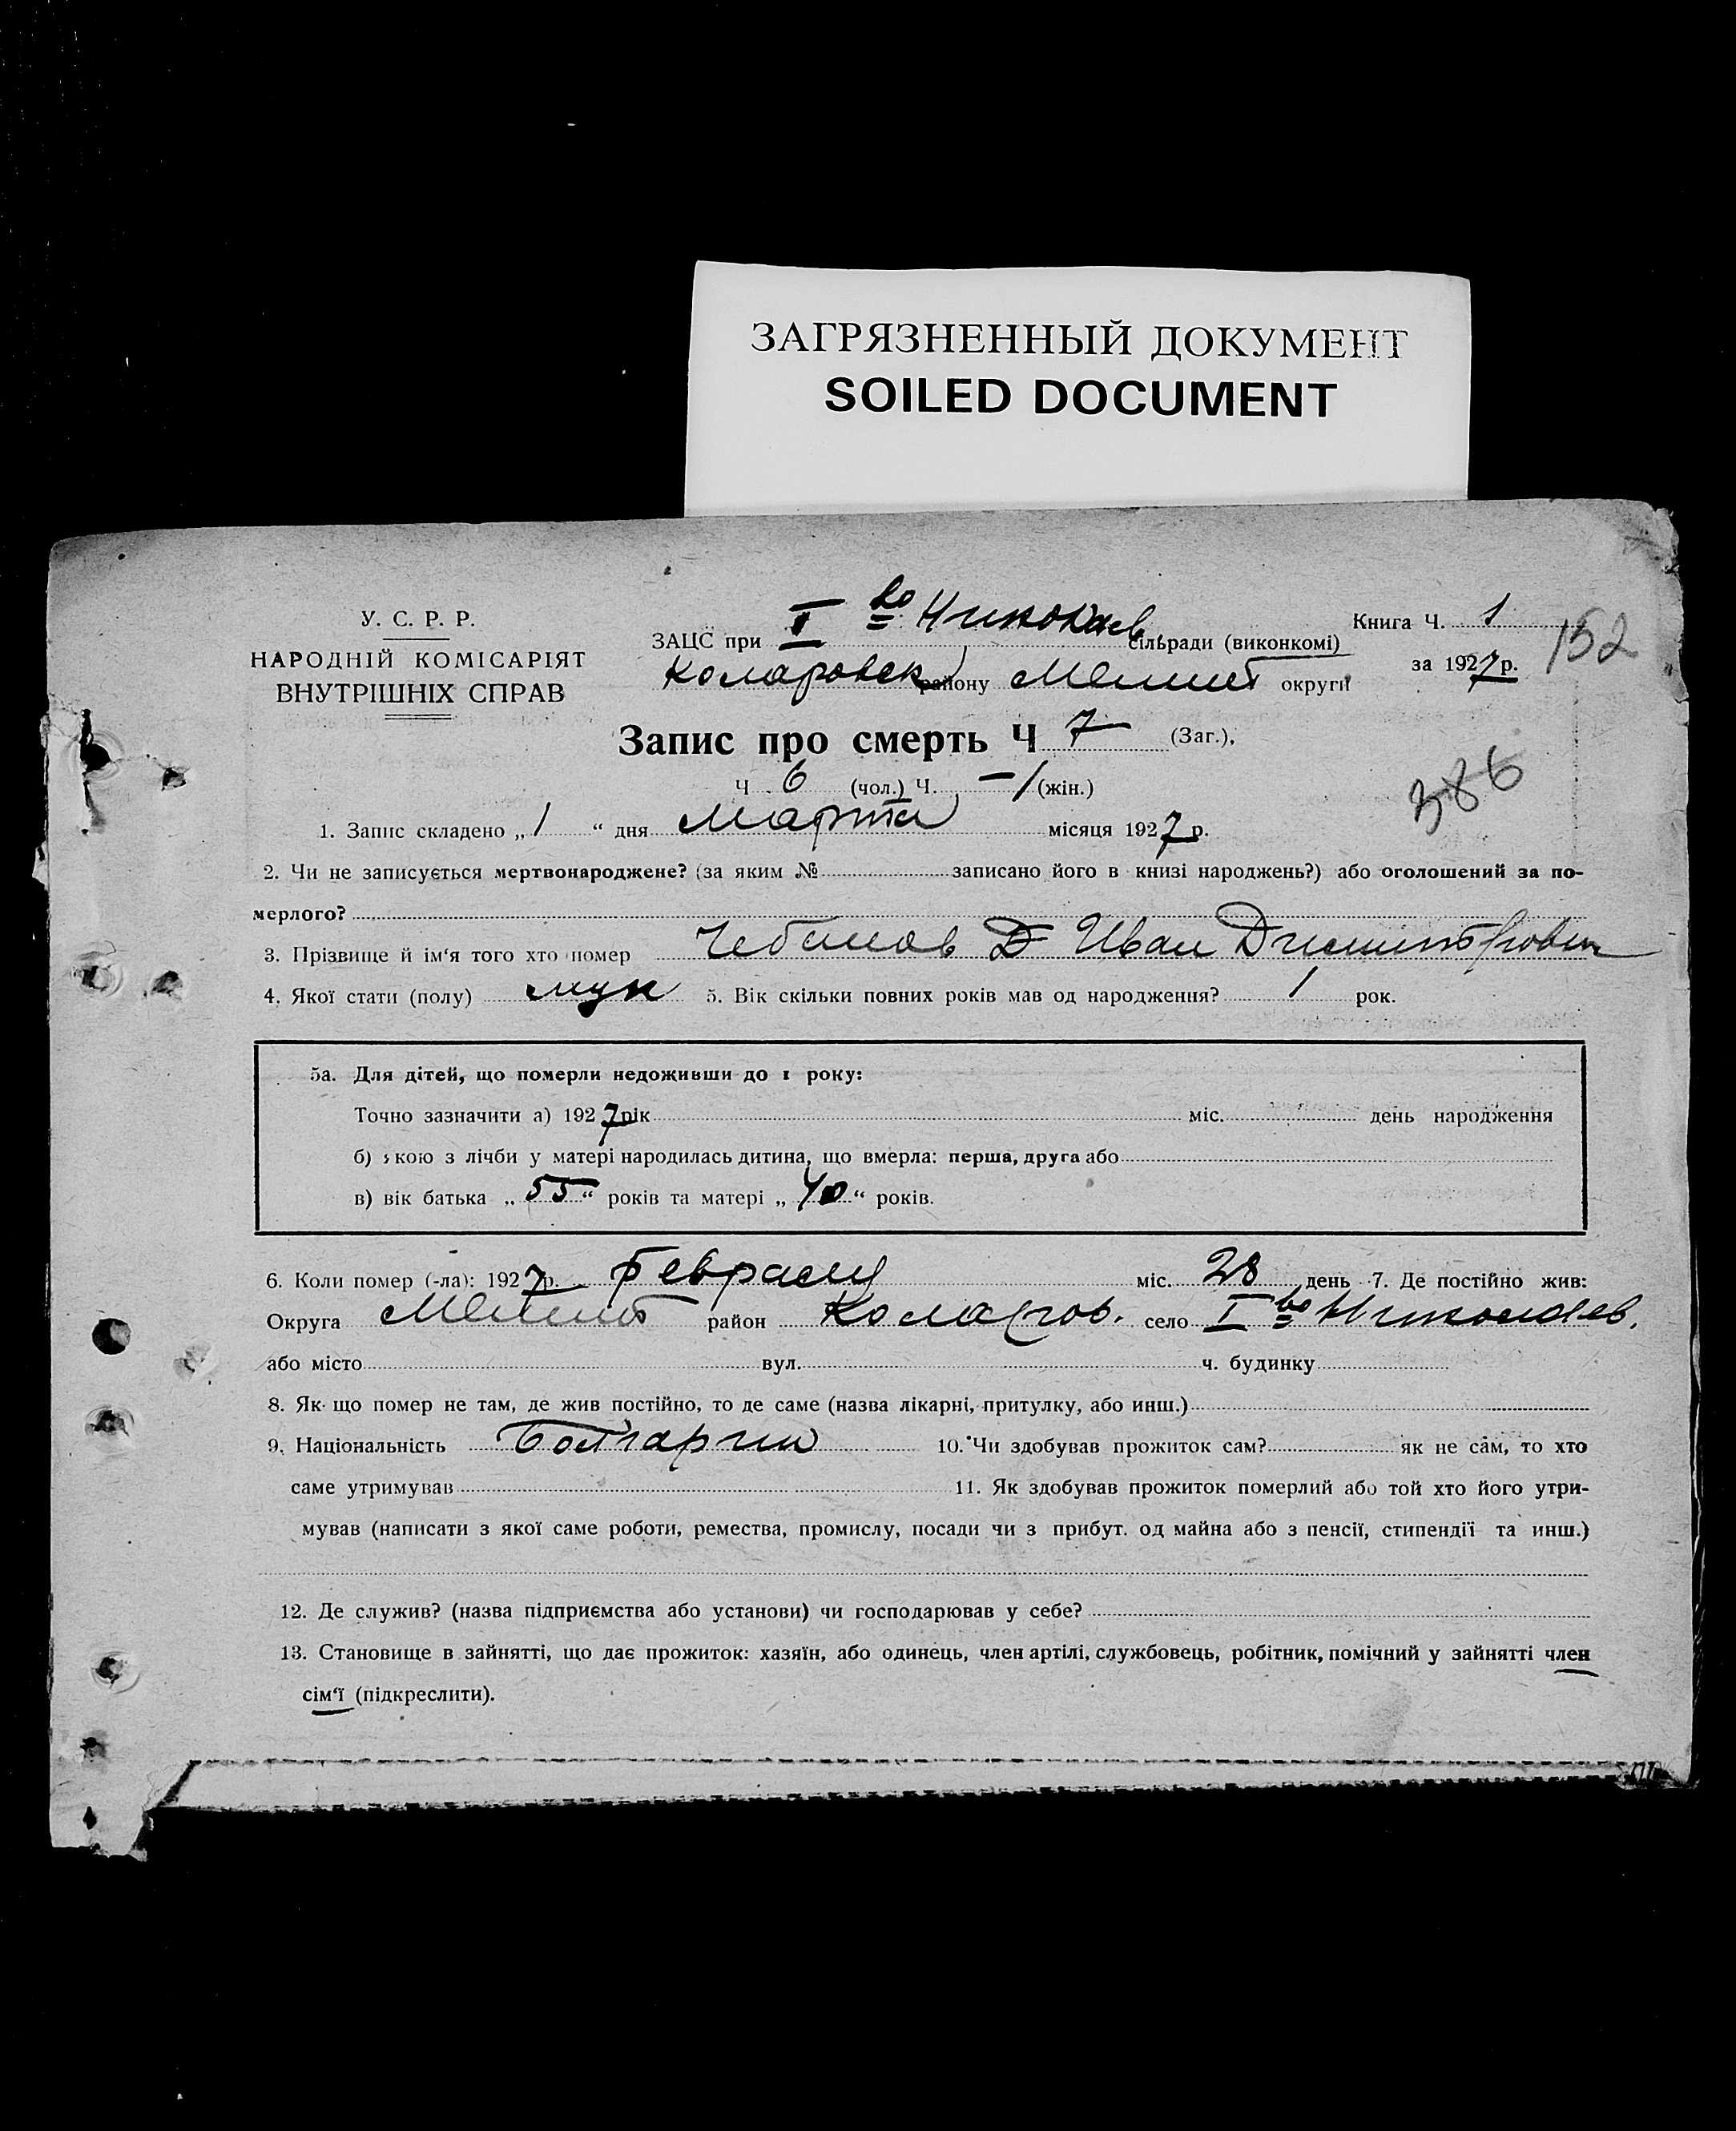 ЗАГРЯЗНЕННЫЙ ДОКУМЕНТ
SOILED DOCUMENT
У. С. Р. Р.
НАРОДНІЙ КОМІСАРІЯТ
ВНУТРІШНІХ СПРАВ
ЗАЦС при I во Николаев. сільради (виконкомі)
Коларовск району Мелит округи
Книга Ч. 1
за 1927 р.
152
Запис про смерть Ч 7 (Заг.),
Ч 6 (чол.) Ч. — 1 (жін.)
386
1. Запис складено „ 1 “ дня Марта місяця 1927 р.
2. Чи не записується мертвонароджене? (за яким № записано його в книзі народжень?) або оголошений за по-
мерлого?
3. Прізвище й ім‘я того хто помер Чебанов Д Иван Димитрович
4. Якої стати (полу) муж 5. Вік скільки повних років мав од народження? 1 рок.
5а. Для дітей, що померли недоживши до 1 року:
Точно зазначити а) 1927 рік міс. день народження
б) якою з лічби у матері народилась дитина, що вмерла: перша, друга або
в) вік батька „ 55 “ років та матері „ 40 “ років.
6. Коли помер (-ла): 1927 р. Февраля міс. 28 день 7. Де постійно жив:
Округа Мелит район Коларов. село I во Николаев.
або місто вул. ч. будинку
8. Як що помер не там, де жив постійно, то де саме (назва лікарні, притулку, або инш.)
9. Національність Болгарин 10. Чи здобував прожиток сам? як не сам, то хто
саме утримував 11. Як здобував прожиток померлий або той хто його утри-
мував (написати з якої саме роботи, ремества, промислу, посади чи з прибут. од майна або з пенсії, стипендії та инш.)
12. Де служив? (назва підприємства або установи) чи господарював у себе?
13. Становище в зайнятті, що дає прожиток: хазяїн, або одинець, член артілі, службовець, робітник, помічний у зайнятті член
сім‘ї (підкреслити).